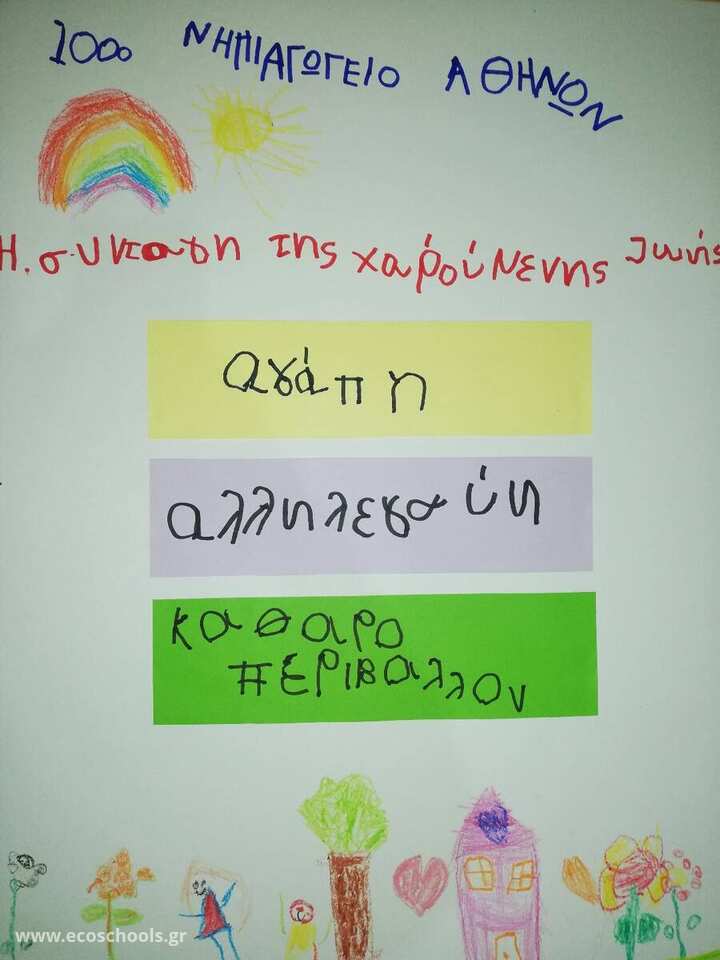 100ο ΝΗΠΙΑΓΩΓΕΙΟ ΑΘΗΝΩΝ
Η συνταγη της χαρούμενης ζωής
αγάπη
αλληλεγγύη
καθαρο
περιβαλλον
www.ecoschools.gr